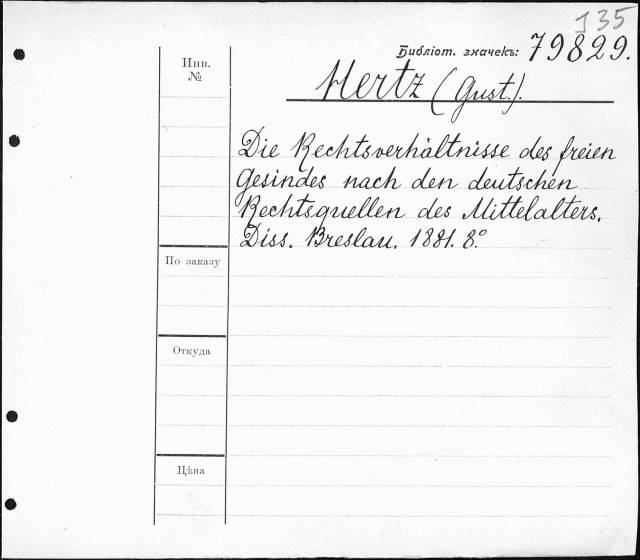 135
Библіот. значекъ: 79829.
Инв.
№
Hertz (Gust.).
Die Rechtsverhältnisse des freien
Gesindes nach den deutschen
Rechtsquellen des Mittelalters.
Diss. Breslau. 1881. 8°
По заказу
Откуда
Цѣна